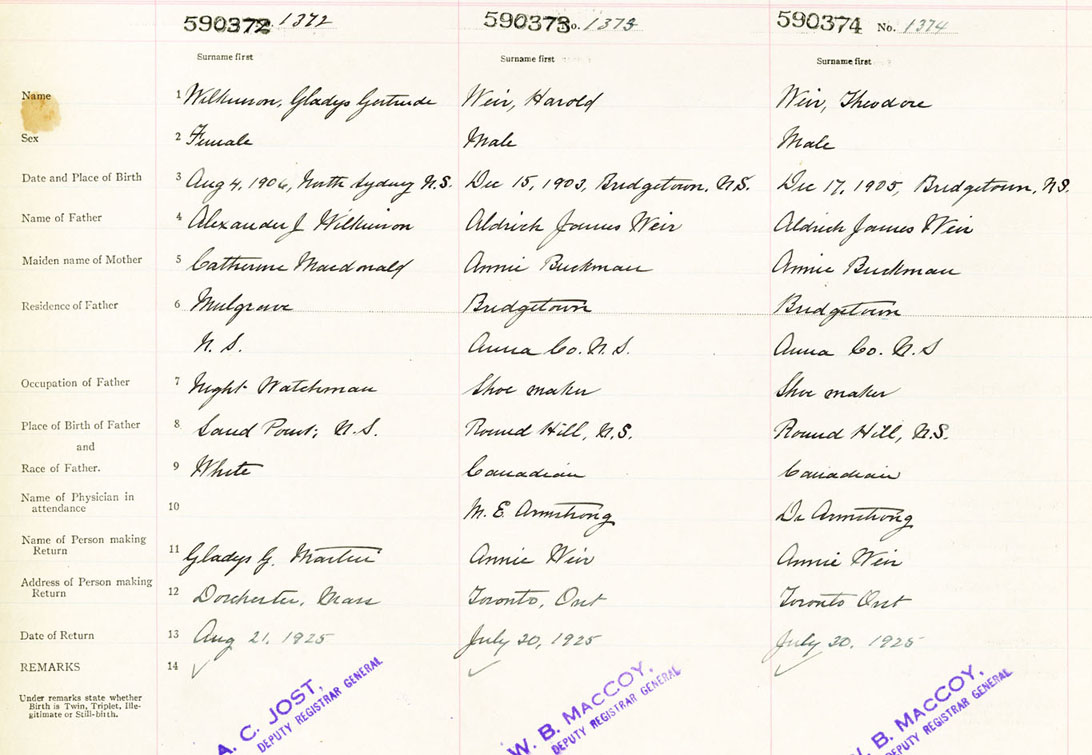 590372 1372 590373 No. 1373 590374 No. 1374
Surname first Surname first Surname first
Name 1 Wilkinson, Gladys Gertrude Weir, Harold Weir, Theodore
Sex 2 Female Male Male
Date and Place of Birth 3 Aug 4, 1906, North Sydney N.S. Dec 15, 1903, Bridgetown, N.S. Dec 17, 1905, Bridgetown, N.S.
Name of Father 4 Alexander J Wilkinson Aldrich James Weir Aldrich James Weir
Maiden name of Mother 5 Catherine Macdonald Annie Buckman Annie Buckman
Residence of Father 6 Mulgrave Bridgetown Bridgetown
N. S. Anna Co. N.S. Anna Co. N.S
Occupation of Father 7 Night Watchman Shoe maker Shoe maker
Place of Birth of Father 8 Sand Point, N.S. Round Hill, N.S. Round Hill, N.S.
and
Race of Father. 9 White Canadian Canadian
Name of Physician in
attendance 10 M. E. Armstrong Dr Armstrong
Name of Person making
Return 11 Gladys G. Martin Annie Weir Annie Weir
Address of Person making
Return 12 Dorchester, Mass Toronto, Ont Toronto Ont
Date of Return 13 Aug 21, 1925 July 20, 1925 July 20, 1925
REMARKS 14
Under remarks state whether
Birth is Twin, Triplet, Ille-
gitimate or Still-birth.
A. C. JOST,
DEPUTY REGISTRAR GENERAL
W. B. MACCOY,
DEPUTY REGISTRAR GENERAL
W. B. MACCOY,
DEPUTY REGISTRAR GENERAL